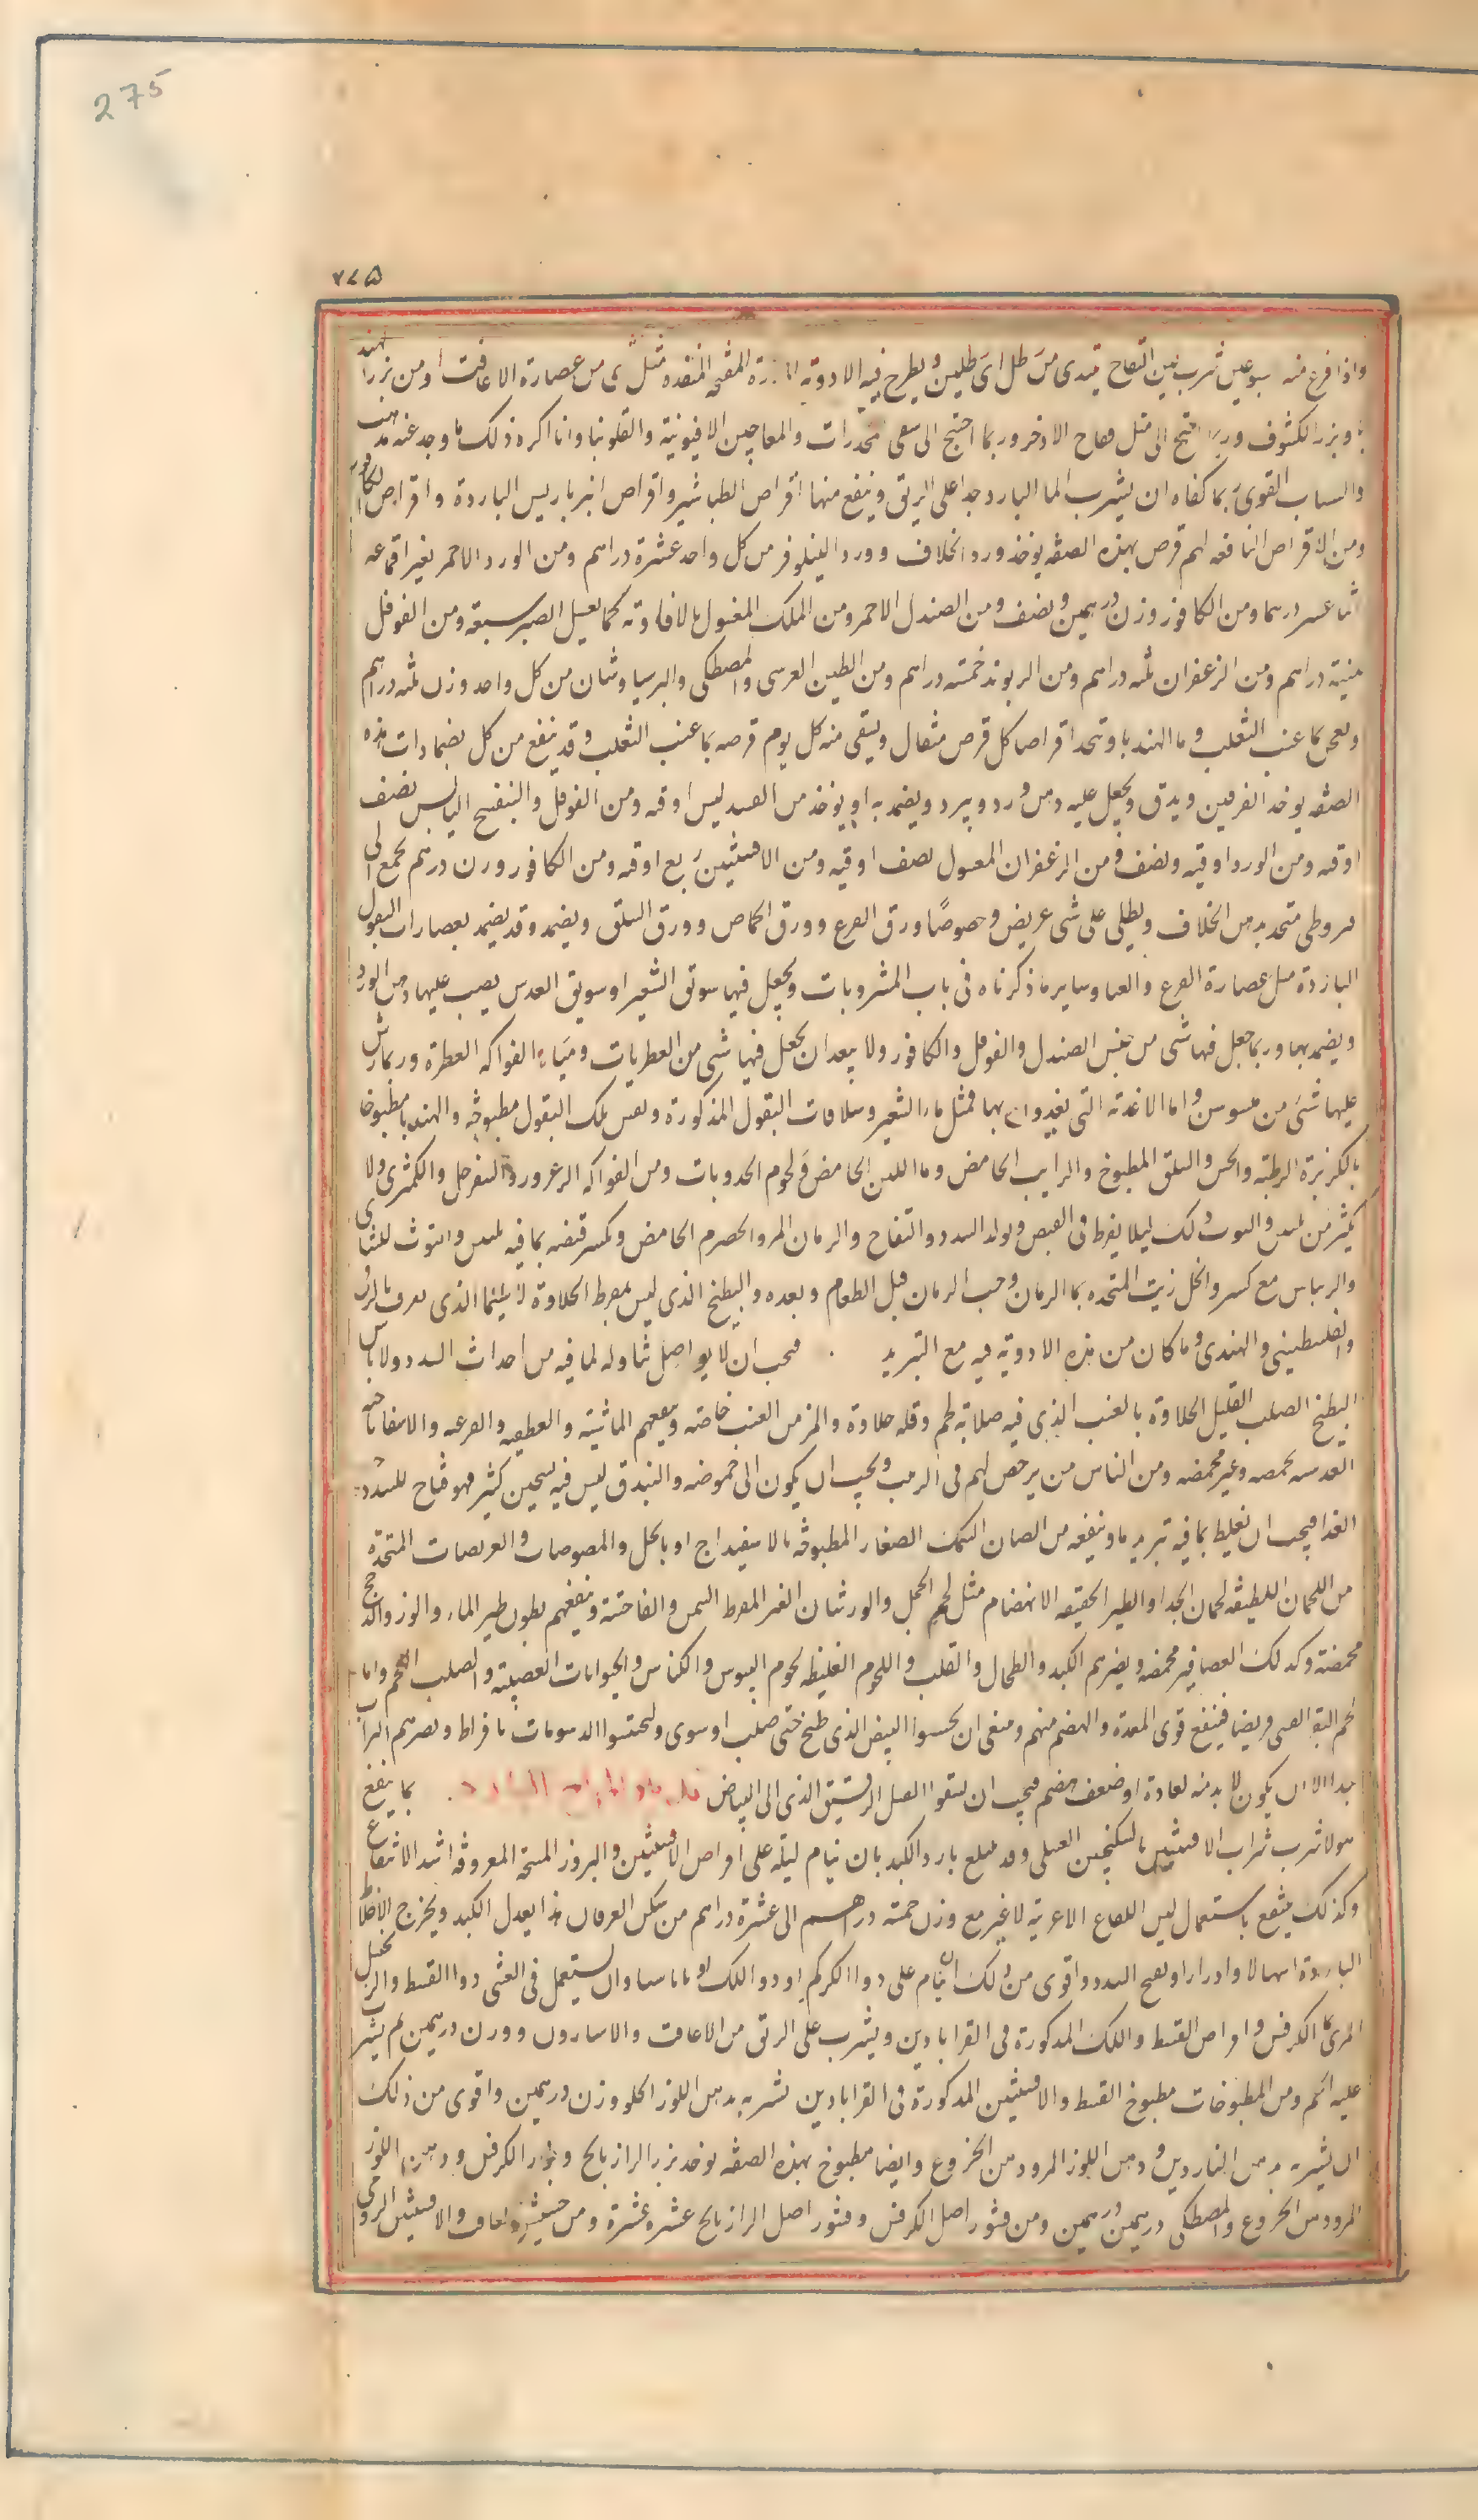 275
٢٧۵
واذا فرغ منه سبوعين شرب لبن اللقاح يبتدى من رطل الى رطلين ويطرح فيه الادوية المفتحة المنفذة مثل شى من عصارة الاغافت او من بزر الهند
با وبزر الكشوث وربما احتج الى مثل فقاح الاذخر وربما احتج الى سقى مخدرات والمعاجين الافيونية والفلونيا وانا اكره ذلك ما وجد عنه مذهب
والشباب القوى ربما كفاه ان يشرب الما البارد جدا على الريق وينفع منها اقراص الطباشير واقراص انبرباريس الباردة واقراص الكافور
ومن الاقراص النافعة لهم قرص بهذه الصفة يوخذ ورد الخلاف وورد النيلوفر من كل واحد عشرة دراهم ومن الورد الاحمر بغير اقماعه
اثنا عشر درهما ومن الكافور وزن درهمين ونصف ومن الصندل الاحمر ومن اللك المغسول بالافاوية كما يغسل الصبر سبعة ومن الفوفل
ثمنية دراهم ومن الزعفران ثلثة دراهم ومن الريوند خمسة دراهم ومن الطين العرسى والمصطكى والبرسياوشان من كل واحد وزن ثلثة دراهم
ويعجن بما عنب الثعلب وما الهندبا ويتخذ اقراصا كل قرص مثقال ويسقى منه كل يوم قرصه بما عنب الثعلب وقد ينفع من كل بضمادات هذه
الصفة يوخذ الفرفين ويدق ويجعل عليه دهن ورد ويبرد ويضمد به او يوخذ من الصندلين اوقية ومن الفوفل والبنفسج اليابس نصف
اوقية ومن الورد اوقية ونصف ومن الزعفران المغسول نصف اوقية ومن الافسنتين ربع اوقية ومن الكافور وزن درهم يجمع الى
قيروطى متخد بدهن الخلاف ويطلى على شى عريض وخصوصًا ورق القرع وورق الحماض وورق السلق ويضمد وقد يضمد بعصارات البقول
الباردة مثل عصارة القرع والقثا وساير ما ذكرناه فى باب المشروبات ويجعل فيها سويق الشعير او سويق العدس يصب عليها دهن الورد
ويضمد بها وربما جعل فيها شى من جنس الصندل والفوفل والكافور ولا يبعد ان يجعل فيها شى من العطريات ومياه الفواكه العطرة وربما رش
عليها شى من ميسوسن واما الاغذية التى يغذون بها فمثل ماء الشعير وسلاقات البقول المذكورة ونفس تلك البقول مطبوخة والهندبا مطبوخا
بالكزبرة الرطبة والخس والسلق المطبوخ والرايب الحامض وما اللبن الحامض ولحوم الحدوبات ومن الفواكه الزعرور والسفرجل والكمثرى ولا
يكثر من لمس والتوت ذلك ليلا يفرط فى القبض ولولد السدد والتفاح والرمان المر والحصرم الحامض ويكسر قبضه بما فيه لمس والتوث الشامى
والريباس مع كسر والخل زيت المتخذه بما الرمان وحب الرمان قبل الطعام وبعده والبطيخ الذى ليس بمفرط الحلاوة لا سيما الذى يعرف بالرقى
والفلسطينى والهندى وما كان من هذه الادوية فيه مع التبريد فيجب ان لا يواصل تناوله لما فيه من احداث السدد ولا باس
البطيخ الصلب القليل الحلاوة بالعنب الذى فيه صلابة لحم وقلة حلاوة والمز من العنب خاصة وينفعهم الماشية والقطفية والقرعية والاسفاناخية
العدسية محمضه وغير محمضه ومن الناس من يرخص لهم فى الزبيب ويجب ان يكون الى حموضة والبندق ليس فيه تسخين كثير فهو فتاح للسدد
الغذا فيجب ان يغلظ بما فيه تبريد ما وينفعه من السمان السمك الصغار المطبوخة بالاسفيداج او بالخل والمصوصات والقريصات المتخذة
من اللحمان اللطيفة لحمان الجدا والطير الخفيفة الانهضام مثل لحم الحجل والورشان الغير المفرط السمن والفاختة وينفعهم بطون طير الماء والوز والدجاج
محمضة وكذلك العصافير محمضه ويضرهم الكبد والطحال والقلب واللحوم الغليظه لحوم التيوس والكباش والحيوانات العصبية والصلب اللحم واما
لحم البقر الفتى قريصا فينفع قوى المعدة والهضم منهم ومنعى ان يحسوا البيض الذى طبخ حتى صلب او شوى وليحتسوا الدسومات بافراط ويضرهم الشراب
جدا الا ان يكون لا بد منه لعادة او ضعف هضم فيجب ان يسقوا القليل الرقيق الذى الى البياض بما ينفع
هولا شرب شراب الافسنتين بالسكنجبين العسلى وقد ينفع بارد الكبد بان ينام ليلة على اقراص الافسنتين والبزور المسخنة المعروفة اشد الانتفاع
وكذلك ينتفع باستعمال لبن اللقاح الاعرابية لا غير مع وزن خمسة دراهم الى عشرة دراهم من سكر العرقان هذا يعدل الكبد ويخرج الاخلاط
الباردة اسهالا وادرارا ويفتح السدد واقوى من ذلك ان ينام على دوا الكركم او دوا اللك او باناسيا وان يستعمل فى العشى دوا القسط والزنجبيل
المربى بما الكرفس واقراص القسط واللك المذكورة فى القرابادين ويشرب على الريق من الاغافت والاسارون وزن درهمين ثم يشرب
عليه انتم ومن المطبوخات مطبوخ القسط والافسنتين المذكورة فى القرابادين يشربه بدهن اللوز الحلو وزن درهمين واقوى من ذلك
ان يشربه بدهن الناردين ودهن اللوز المر ودهن الخروع وايضا مطبوخ بهذه الصفة يوخذ بزر الرازيانج وبزر الكرفس ودهن اللوز
المر ودهن الخروع والمصطكى درهمين درهمين ومن قشور اصل الكرفس وقشور اصل الرازيانج عشره عشرة ومن حشيش الغافت والافسنتين الرومى